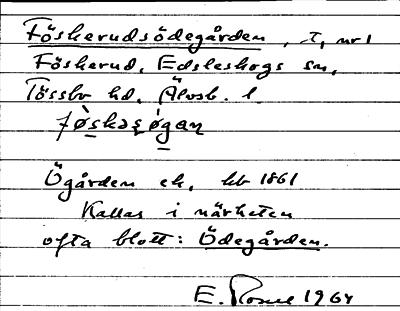 Föskerudsödegården, T, nr 1
Föskerud, Edsleskogs sn,
Tössbo hd, Älvsb. l.
Ögården ek, hb 1861
Kallas i närheten
ofta blott: Ödegården.
E. 1964